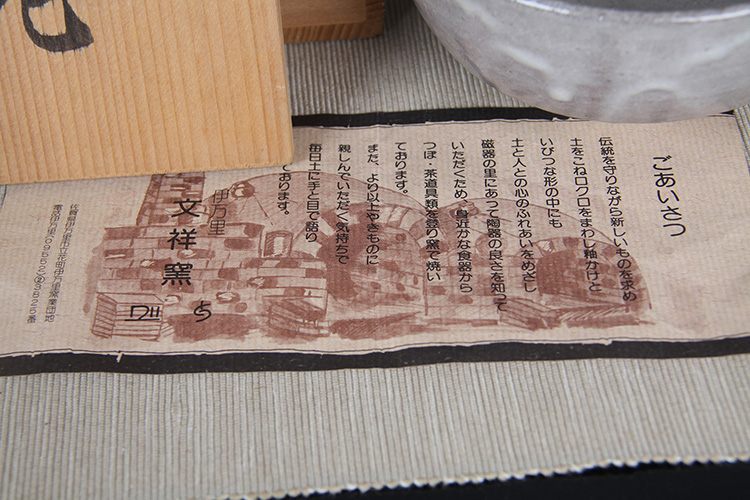 ごあいさつ
伝統を守りながら新しいものを求め
土をこねロクロをまわし釉かけと
いびつな形の中にも
土と人との心のふれあいをめざし
磁器の里にあって陶器の良さを知って
いただくため、身近かな食器から
つぼ・茶道具類を登り窯で焼い
ております。
また、より以上やきものに
親しんでいただく気持ちで
毎日土に手と目で語り
ております。
伊万里
文祥窯
佐賀県伊万里市立花町伊万里窯業団地